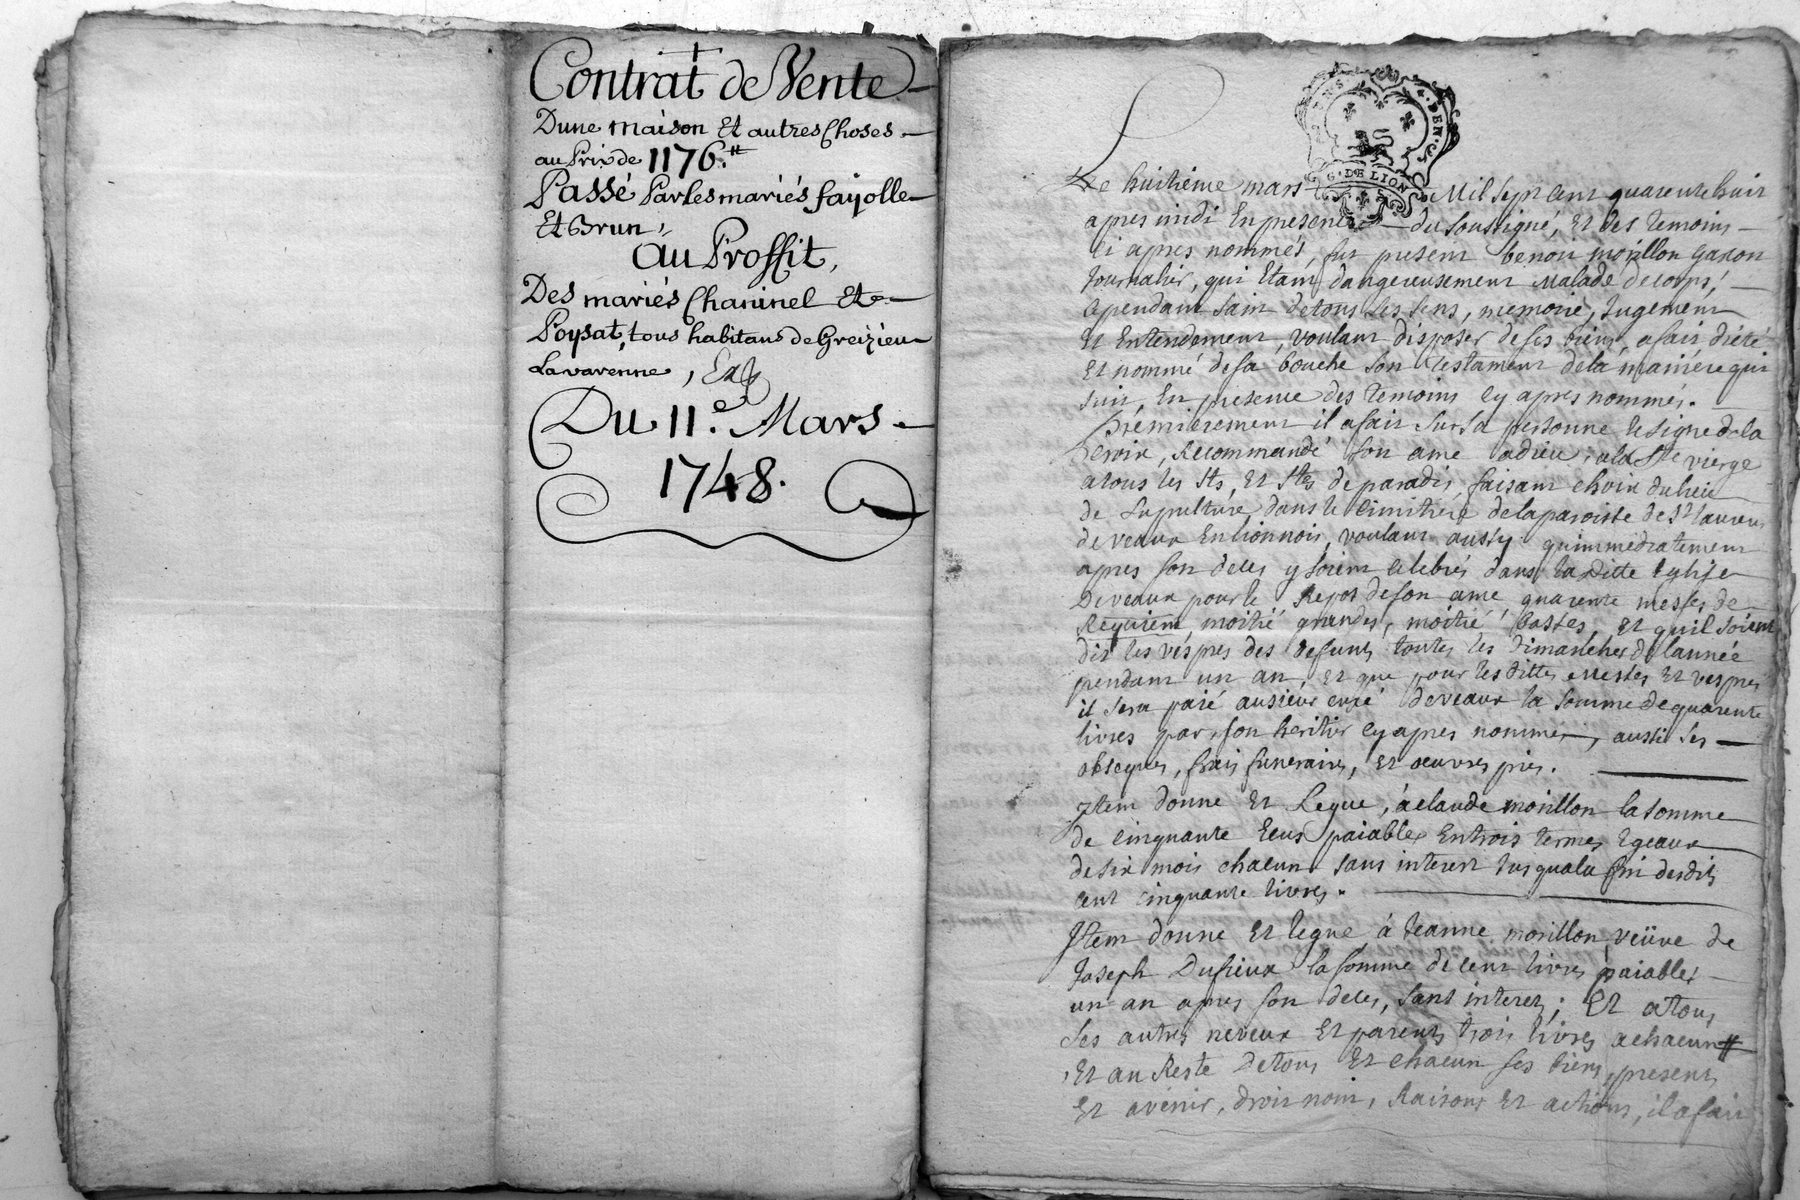 Contrat de Vente
Dune maison Et autres Choses
au Prix de 1176.
Passé Par les mariés fayolle
Et Brun,
Au Proffit,
Des mariés Chaninel Et
Poysat, tous habitans de Greizieu
Lavarenne,
Du 11.e Mars
1748.
G. DE LION
Le huitiéme mars Mil sept cent quarente huit
apres midi En presence du soussigné, Et des temoins
ci apres nommés, fut present benoit morillon garcon
journalier, qui Etant dangereusement Malade de corps,
cependant sain de tous ses sens, memoire, jugement
Et Entendement, voulant disposer de ses biens, a fait dicté
Et nommé de sa bouche son testament de la maniére qui
suit, En presence des temoins cy apres nommés.
Premierement il a fait sur sa personne le signe de la
Croix, Recommandé son ame a dieu, a la Ste vierge
a tous les Sts, Et Stes de paradis, faisant choix du lieu
de sepulture dans le cimitiere de la paroisse de St laurens
de veaux En lionnois, voulant aussy quimmediatement
apres son deces y soient celebrés dans la ditte Eglise
De veaux pour le Repos de son ame quarente messes de
Requiem, moitié grandes, moitié basses, Et quil soient
dit les vespres des defunts toutes les dimanches de lannée
pendant un an, Et que pour les dittes messes Et vespres
il sera paié au sieur curé de veaux la somme de quarente
livres par son heritier cy apres nommé, aussi ses
obseques, frais funeraires, Et oeuvres pies.
Item donne Et Legue, á claude morillon la somme
de cinquante Ecus paiables En trois termes Egeaux
de six mois chacun sans interest jusqua la fin desdits
cent cinquante livres.
Item donne Et legue á Jeanne morillon, veüve de
Joseph Dufieux la somme de cent livres paiables
un an apres son deces, sans interets; Et a tous
ses autres neveux Et parents trois livres a chacun
Et au Reste De tous Et chacun ses biens, presents
Et avenir, droit noms, Raisons Et actions, il a fait